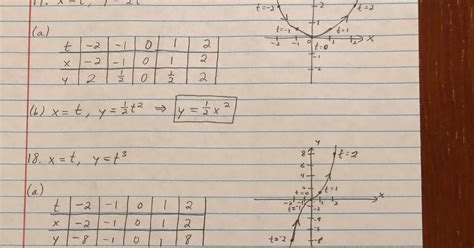 17. x=t, y=
(a)
t -2 -1 0 1 2
x -2 -1 0 1 2
y 2 1/2 0 1/2 2
t=-2 t=2
t=-1 t=1
t=0
-2 -1 1 2 x
2
-1
-2
(b) x=t, y=½t² ⇒ y=½x²
18. x=t, y=t³
(a)
t -2 -1 0 1 2
x -2 -1 0 1 2
y -8 -1 0 1 8
y
8 t=2
6
4
2 t=1
t=0
-2 -1 1 2 x
t=-1
-2
-4
-6
t=-2 -8